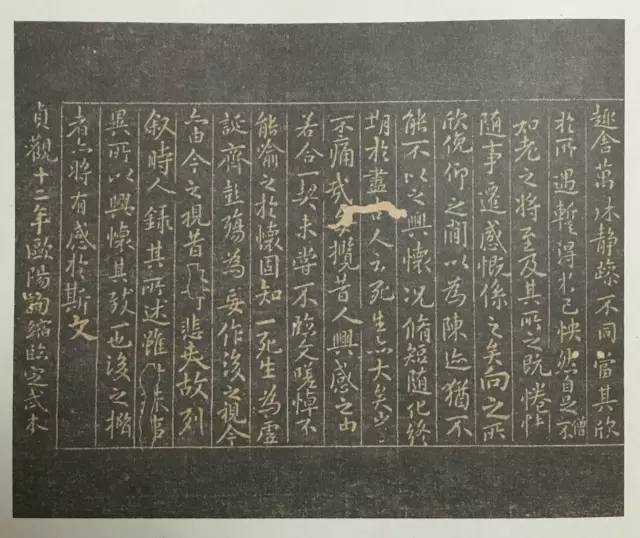 趣舍萬殊静躁不同當其欣
於所遇蹔得於己怏然自足不
僧
知老之將至及其所之既惓情
隨事遷感慨係之矣向之所
欣俛仰之閒以為陳迹猶不
能不以之興懷況脩短隨化終
期於盡古人云死生亦大矣豈
不痛哉每攬昔人興感之由
若合一契未嘗不臨文嗟悼不
能喻之於懷固知一死生為虛
誕齊彭殤為妄作後之視今
亦由今之視昔悲夫故列
叙時人錄其所述雖世殊事
異所以興懷其致一也後之攬
者亦將有感於斯文
貞觀十一年歐陽詢縮臨定武本